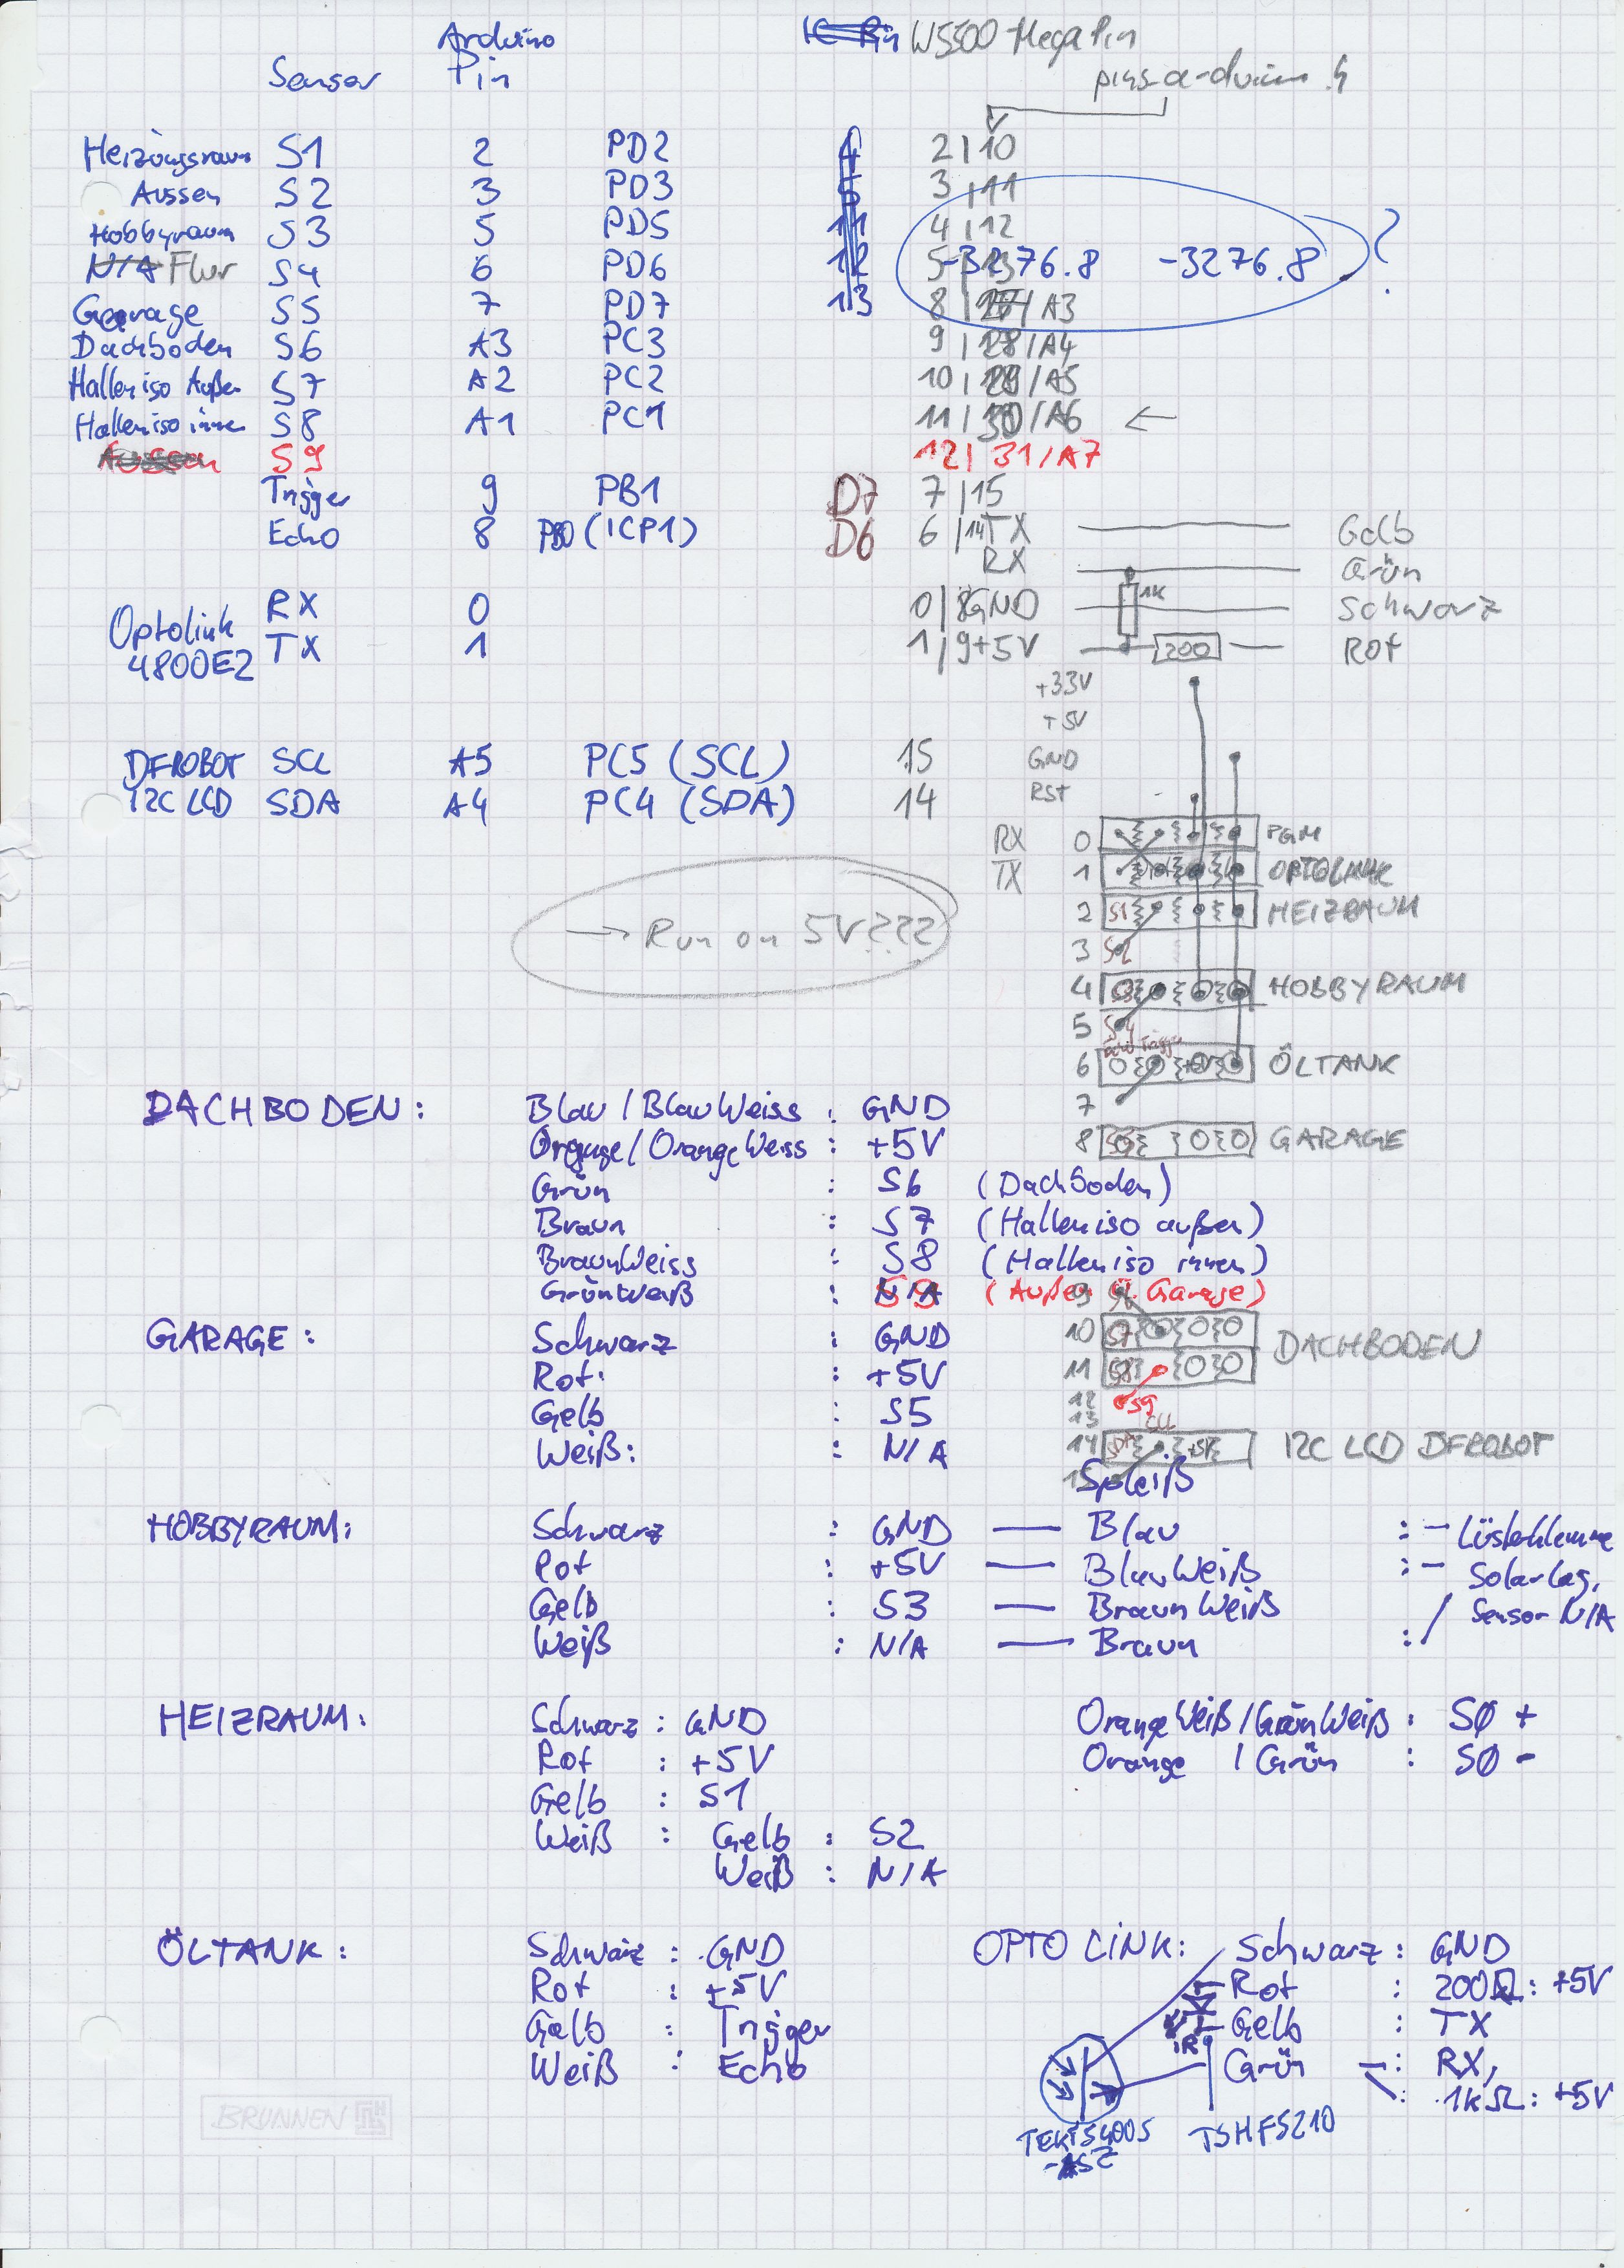 Arduino W5500-MegaPin
Sensor Pin pins-arduino.h
Heizungsraum S1 2 PD2 4 2 | 10
Aussen S2 3 PD3 5 3 | 11
Hobbyraum S3 5 PD5 11 4 | 12
N/A Flur S4 6 PD6 12 5 | 13 -3276.8 -3276.8 ?
Garage S5 7 PD7 13 8 | /A3
Dachboden S6 A3 PC3 9 | 28/A4
Halleniso Außen S7 A2 PC2 10 | 29/A5
Halleniso innen S8 A1 PC1 11 | 30/A6 ←
Aussen S9 12 | 31/A7
Trigger 9 PB1 D7 7 | 15
Echo 8 PB0 (ICP1) D6 6 | 14 TX Gelb
RX Grün
Optolink RX 0 0 | 8 GND 1K Schwarz
4800E2 TX 1 1 | 9 +5V 200 Rot
+33V
+5V
DFROBOT SCL A5 PC5 (SCL) 15 GND
I2C LCD SDA A4 PC4 (SDA) 14 RST
RX 0 PGM
TX 1 OPTOLINK
2 S1 HEIZRAUM
→ Run on 5V???
3 S2
4 S3 HOBBYRAUM
5 S4
Echo Trigger
6 +5V ÖLTANK
7
DACHBODEN: Blau / BlauWeiss : GND
8 S5 GARAGE
Orange / OrangeWeiss : +5V
Grün : S6 (Dachboden)
Braun : S7 (Halleniso außen)
BraunWeiss : S8 (Halleniso innen)
GrünWeiß : N/A S9 (Außen Ü. Garage)
9 S6
GARAGE: Schwarz : GND
10 S7 DACHBODEN
Rot : +5V
11 S8
Gelb : S5
12 S9
13 SCL
Weiß: : N/A
14 SDA +5V I2C LCD DFROBOT
15 Spleiß
HOBBYRAUM: Schwarz : GND — Blau : - Lüsterklemme
Rot : +5V — BlauWeiß : - Solarlag.
Gelb : S3 — BraunWeiß / Sensor N/A
Weiß : N/A — Braun :
HEIZRAUM: Schwarz : GND OrangeWeiß / GrünWeiß : SØ +
Rot : +5V Orange / Grün : SØ -
Gelb : S1
Weiß : Gelb : S2
Weiß : N/A
ÖLTANK: Schwarz : GND OPTO LINK: Schwarz : GND
Rot : +5V Rot : 200Ω : +5V
Gelb : Trigger Gelb : TX
IR
Weiß : Echo Grün : RX,
: 1kΩ : +5V
BRUNNEN
TEKT5400S TSHF5210